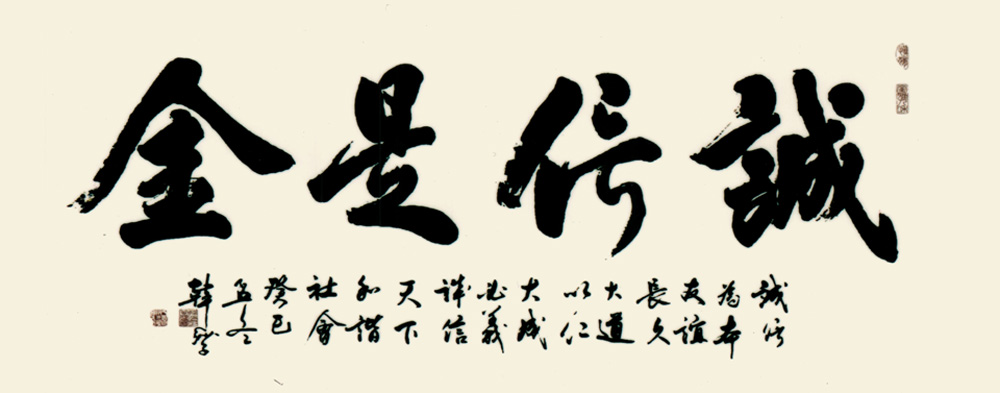 誠信是金
誠信
為本
友誼
長久
大道
以仁
大
義
誠信
天下
和諧
社會
癸巳
孟冬
韓學